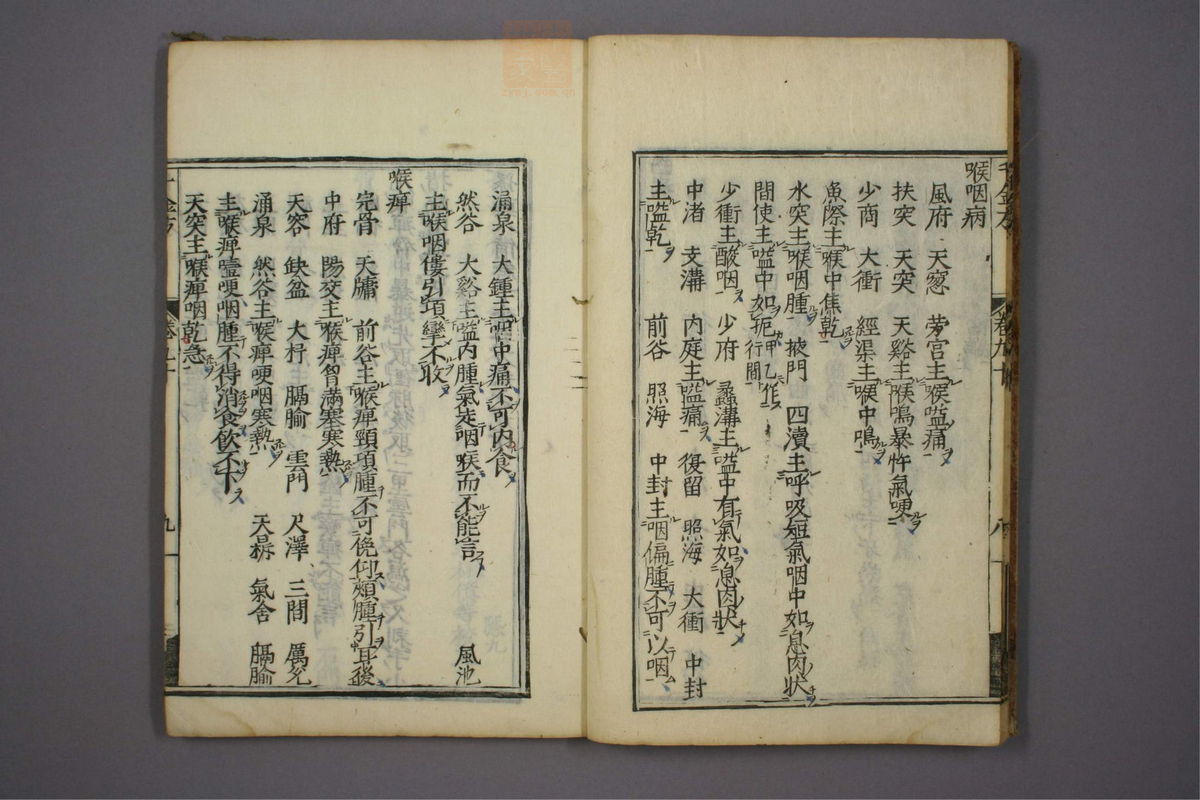 喉咽病
風府　天窗　勞宮主喉嗌痛
扶突　天突　天谿主喉鳴暴忤氣哽
少商　大衝　經渠主喉中鳴
魚際主喉中焦乾
水突主喉咽腫　掖門　四瀆主呼吸短氣咽中如息肉狀
間使主嗌中如扼甲乙作行間
少衝主酸咽　少府　蠡溝主嗌中有氣如息肉狀
中渚　支溝　內庭主嗌痛　復留　照海　大衝　中封
主嗌乾　前谷　照海　中封主咽偏腫不可以咽
涌泉　大鍾主咽中痛不可內食
然谷　大谿主嗌內腫氣走咽喉而不能言　風池
主喉咽僂引項攣不收
喉痺
完骨　天牖　前谷主喉痺頸項腫不可俛仰頰腫引耳後
中府　陽交主喉痺胷滿塞寒熱
天容　缺盆　大杼　膈腧　雲門　尺澤　三間　厲兌
涌泉　然谷主喉痺哽咽寒熱　天鼎　氣舍　膈腧
主喉痺噎哽咽腫不得消食飲不下
天突主喉痺咽乾急
千金方　卷九十　八
千金方　卷九十　九